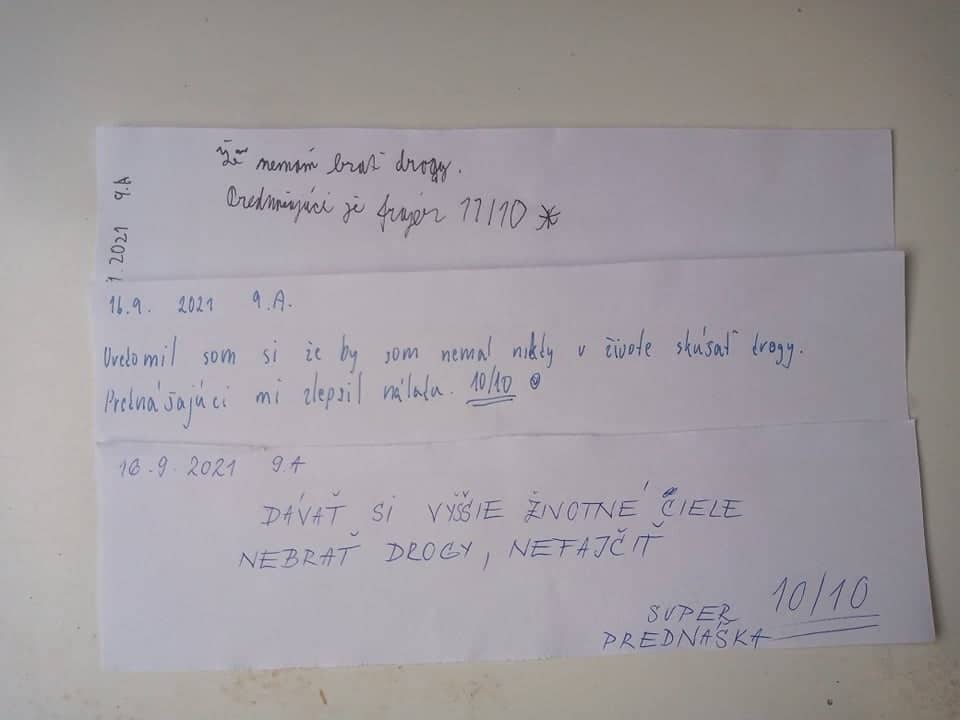 Že nemám brať drogy.
Prednášajúci je frajér 11/10
. 2021 9.A
16.9. 2021 9.A.
Uvedomil som si že by som nemal nikdy v živote skúšať drogy.
Prednášajúci mi zlepsil náladu. 10/10
16.9.2021 9.A
DÁVAŤ SI VYŠŠIE ŽIVOTNÉ CIELE
NEBRAŤ DROGY, NEFAJČIŤ
10/10
SUPER
PREDNÁŠKA